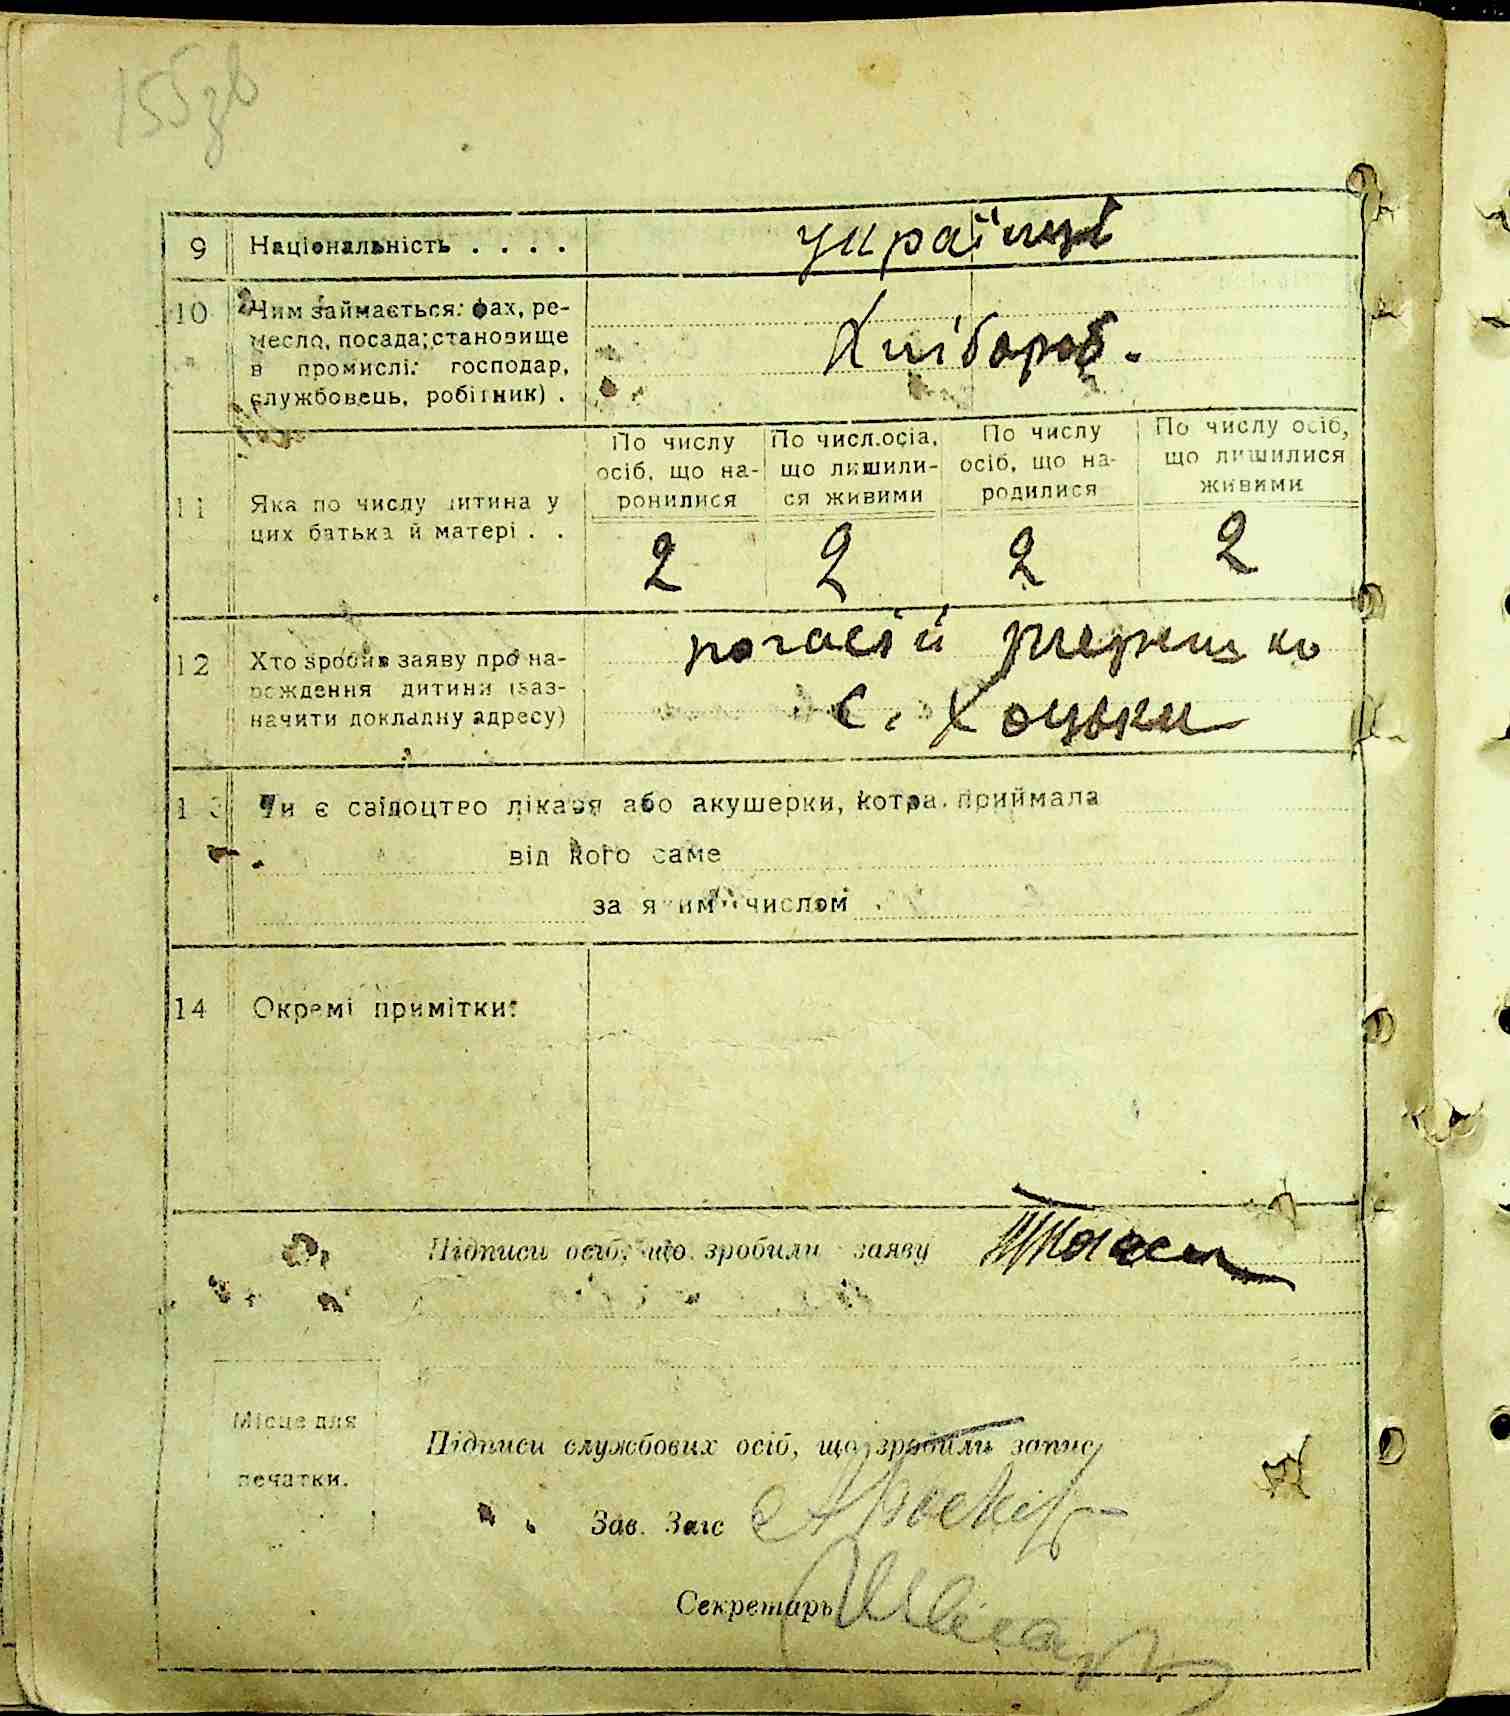 155зв
9 Національність . . . . українці
10 Чим займається: фах, ре-
месло, посада; становище
в промислі: господар,
службовець, робітник) .
Хлібороб.
11 Яка по числу дитина у
цих батька й матері . .
По числу
осіб, що на-
ронилися
2
По числ.осіа,
що лишили-
ся живими
2
По числу
осіб, що на-
родилися
2
По числу осіб,
що лишилися
живими
2
12 Хто зробив заяву про на-
рождення дитини (заз-
начити докладну адресу)
с. Хоцьки
13 Чи є свідоцтво лікаря або акушерки, котра приймала
від кого саме
за яким числом
14 Окремі примітки:
Підписи осіб, що зробили заяву
Місце для
печатки.
Підписи службових осіб, що зробили запис
Зав. Загс
Секретарь